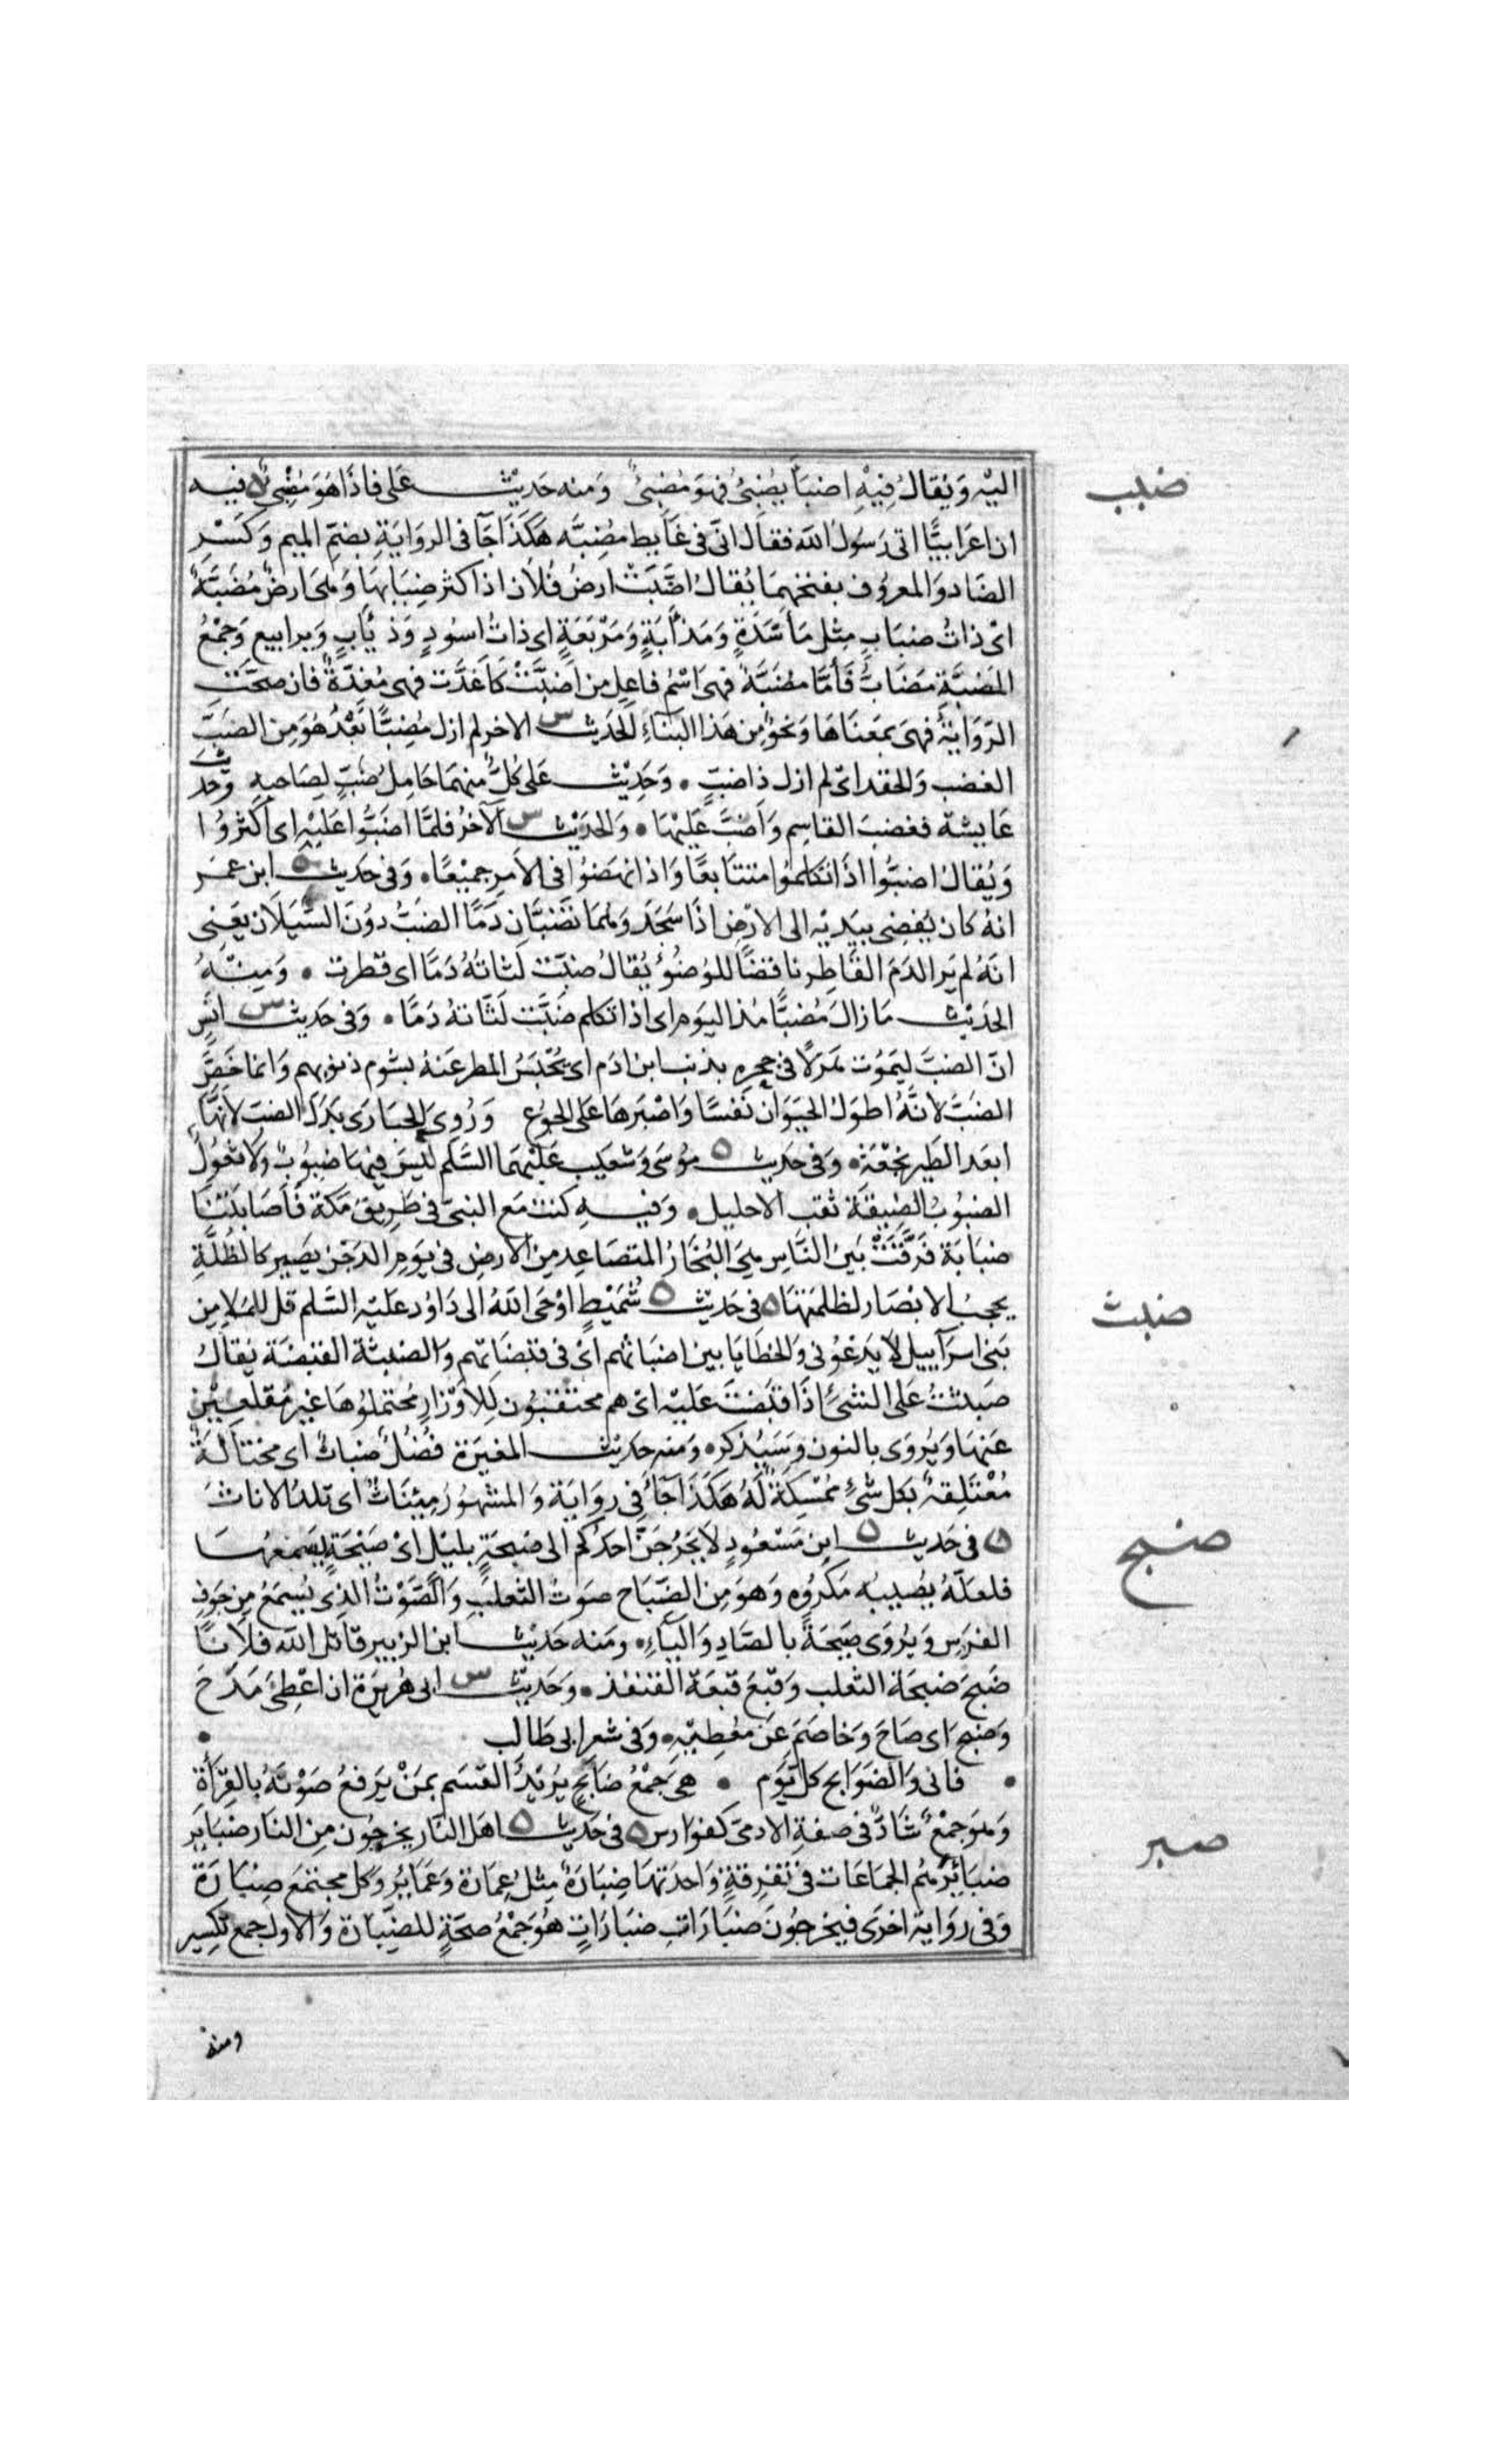 ضبب
اليْه وَيُقالُ فِيْهِ اضبَأ يُضْبِئُ فهوَ مُضبِئ وَمنه حَدِيْث عَلى فاذَا هُوَ مُضْبِئ ٥ فيه
ان اعَرابيًّا اتى رَسُولَ الله فقال انّى فى غَايط مُضِبَّه هَكَذَا جَآ فى الروَايَةِ بضمّ الميم وَكَسْرِ
الضاد وَالمعروُف بفتحهمَا يُقالُ اضَّبَتْ ارضُ فُلَان اذا كثر ضِبَابهَا وَهىَ ارضٌ مُضَبَّةٌ
اىْ ذاتُ ضبَابٍ مِثل مَأسَدَةٍ وَمَذْأبَةٍ وَمَرْبَعَةٍ اى ذاتُ اسُودٍ وَذيَابٍ وَيرابيع وَجَمْعُ
المَضبَّةِ مَضَابُّ فَأمَّا مُضبَّةٌ فهىَ اسْمُ فاعِل من اضبَّتْ كَاَغدَّت فهى مُغِدَّةٌ فان صحَّتَ
الرّوَايَةُ فهىَ بمَعنَاهَا وَنحوٌ من هَذا البنَاءِ الحَديث س الاخر لم ازل مُضِبًّا بَعْدُ هُوَ مِن الضَبّ
الغضب وَالحقد اىْ لم ازل ذا ضبّ • وَحَدِيْث عَلى كُلٌّ منهمَا حَامِلُ ضَبّ لصَاحبه وَحَديث
عَايشة فغضبَ القاسِم وَاَضبَّ عَليْهَا • وَالحديْث س الآخرُ فلمَّا اضَبُّوا عَليْهِ اى اكثرُوُا
وَيُقالُ اضبُّوا اذَا تكلموُا متتابعًا وَاذا نهضوُا فى الامرِ جميْعًا • وَفى حَديث ٥ ابن عمَر
انهُ كان يُفضِى بيَديْه الى الارضِ اذا سَجَدَ وَهُمَا تَضبَّانِ دَمًا الضبُّ دوُنَ السَّيَلَان يَعنى
انهُ لم يَر الدَمَ القَاطِر ناقضًا للوُضُوْءِ يُقالُ ضبّت لثاتهُ دَمًا اى قطرت • وَمِنهُ
الحَديْث مَا زالَ مُضبًّا مُذ اليَومِ اى اذا تكلم ضَبَّت لَثاتهُ دَمًا • وَفى حَديث س انَسٍ
انّ الضبَّ ليَموُت هَزلًا فى جحره بذنب ابن ادَم اى يُحْتبَسُ المطر عَنهُ بشوم ذنوبهم وَانما خَصَّ
الضَبَّ لانهُ اطولُ الحيَوَان نَفسًا وَاصْبَرهَا عَلى الجوُع وَرُوِىَ الحبَارَى بَدَل الضبّ لانهَّا
ابعَد الطَير نجْعَةً • وَفى حَديث ٥ موُسَى وَشعَيب عَليْهمَا السَّلم ليْسَ فيهَا ضبُوُبٌ وَلَا ثعُولٌ
الضبُوُبُ الضيقة ثقب الاحليل • وَفيهِ كنت مَع النبىّ فى طَريْق مَكة فَاَصَابَتْنَا
ضبَابَة فَرَّقَتْ بَينَ النَّاسِ هىَ البُخَارُ المتصَاعِد مِن الارضِ فى يوَم الدَجْن يَصِير كالظُلَّةِ
ضبث
يحجبُ الابْصَار لظلمتهَا ٥ فى حَديْث ٥ شُمَيْطٍ اوْحَى الله الى دَاوُد عَليْه السَّلم قل للمَلاءِ مِن
بَنى اسرَآييل لا يَدعُوْنى وَالخطَايَا بين اضبَاثهم اىْ فى قبضَاتهم وَالضبثة القبضَة يُقالُ
ضَبثتُ عَلى الشىْءِ اذَا قبَضتَ عَليْه اىْ هم محتقبُون لِلاَوْزارِ مُحتملُوهَا غيْر مُقلعيْن
عَنهَا وَيُروَى بالنون وَسَيُذكر • وَمنه حَديث المغيرَة فُضُلٌ ضَباثٌ اى مختالةٌ
مُعْتَلِقةٌ بكل شىْءٍ مُمْسِكَةٌ لَهُ هَكذَا جَآءَ فى روَايَة وَالمشهوُر مِئنَاثٌ اى تلدُ الاناثَ
ضبح
٥ فى حَديث ٥ ابن مَسْعُودٍ لَا يَخرُجَنّ احَدُكم الى ضبحَةٍ بليْل اىْ صَيْحَةٍ يَسمَعُهَا
فلعَلهُ يصُيبهُ مَكرُوُه وَهوَ مِن الضّبَاح صَوت الثَعلبِ وَالصَّوْتُ الذى يُسمَعُ مِن جَوفِ
الفرَس وَيُروَى صَيحَةً بالصَّادِ وَاليَاءِ • وَمنه حَديْث ابن الزبير قاتل الله فلَانًا
ضَبحَ ضبحَة الثعلب وَقبَعَ قبعَة القنفذ • وَحَديْث س ابى هُريْرَة ان اعْطِىَ مَدَحَ
وَضبح اى صَاحَ وَخاصَمَ عَن مُعطِيْه • وَفى شعر ابى طَالب •
• فانى وَالضوَابح كل يَوم • هىَ جَمْعُ ضَابحٍ يُريْدُ القسَم بمَنْ يَرفعُ صَوْتهُ بالقرآة
ضبر
وَهوَ جمْعٌ شَاذٌّ فى صفةِ الادمىّ كفوَارس ٥ فى حَديْث ٥ اهل النَار يخرجُون مِن النَار ضبَايرَ
ضبَائِرَ هُمُ الجمَاعَات فى تفرقةٍ وَاحدَتهَا ضِبَارَةٌ مِثلُ عِمَارة وَعَمَايُر وَكل مجتمَع ضِبَارَةٌ
وَفى روَاية اخرَى فيخرجُونَ ضبَارَاتٍ ضبَارَاتٍ هُوَ جَمْعُ صحَةٍ للضِّبَارَة وَالاولُ جمع تكسِير
ومنه